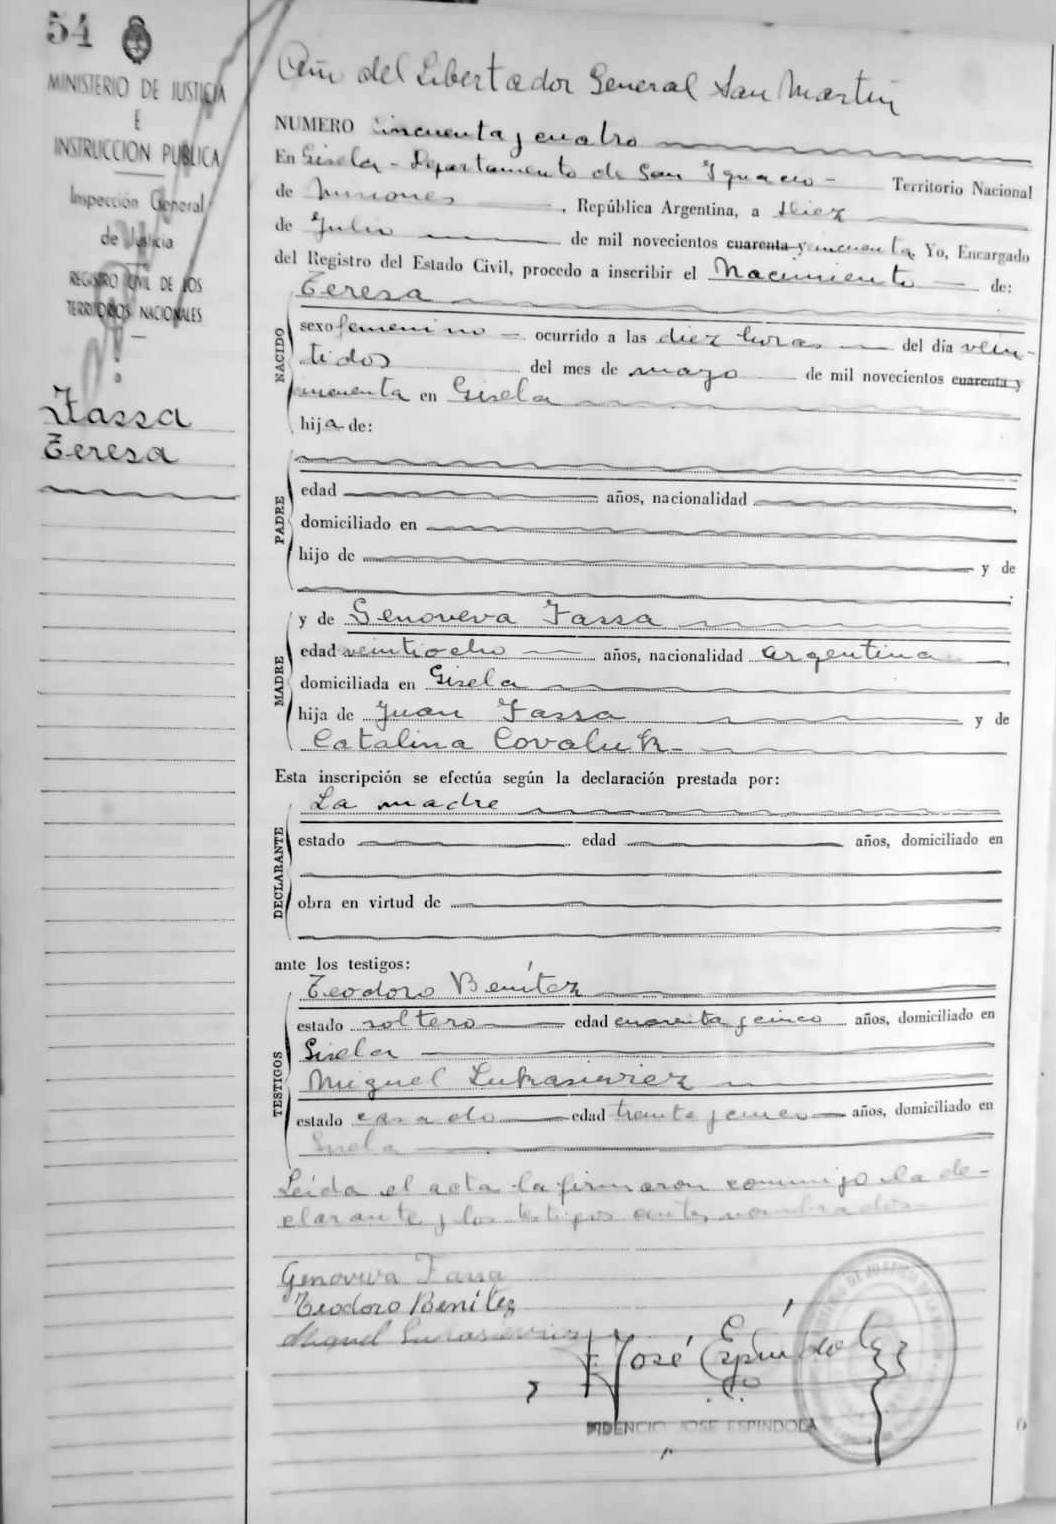 54
MINISTERIO DE JUSTICIA
E
INSTRUCCION PUBLICA
Inspección General
de Justicia
REGISTRO CIVIL DE LOS
TERRITORIOS NACIONALES
Fassa
Teresa
Año del Libertador General San Martin
NUMERO cincuenta y cuatro
En Gisela - Departamento de San Ignacio - Territorio Nacional
de Misiones, República Argentina, a diez
de Julio de mil novecientos cuarenta y cincuenta Yo, Encargado
del Registro del Estado Civil, procedo a inscribir el Nacimiento de:
Teresa
NACIDO
sexo femenino - ocurrido a las diez horas del día vein-
tidos del mes de mayo de mil novecientos cuarenta y
cincuenta en Gisela
hija de:
PADRE
edad años, nacionalidad
domiciliado en
hijo de y de
MADRE
y de Genoveva Fassa
edad veintiocho años, nacionalidad argentina
domiciliada en Gisela
hija de Juan Fassa y de
Catalina Covaluk
Esta inscripción se efectúa según la declaración prestada por:
DECLARANTE
La madre
estado edad años, domiciliado en
obra en virtud de
ante los testigos:
TESTIGOS
Teodoro Benítez
estado soltero edad cuarenta y cinco años, domiciliado en
Gisela
Miguel Lukasievicz
estado casado edad treinta y cinco años, domiciliado en
Gisela
Leída el acta la firmaron conmigo la de-
clarante y los testigos antes nombrados
Genoveva Fassa
Teodoro Benítez
Miguel
José Espíndola
FIDENCIO JOSE ESPINDOLA